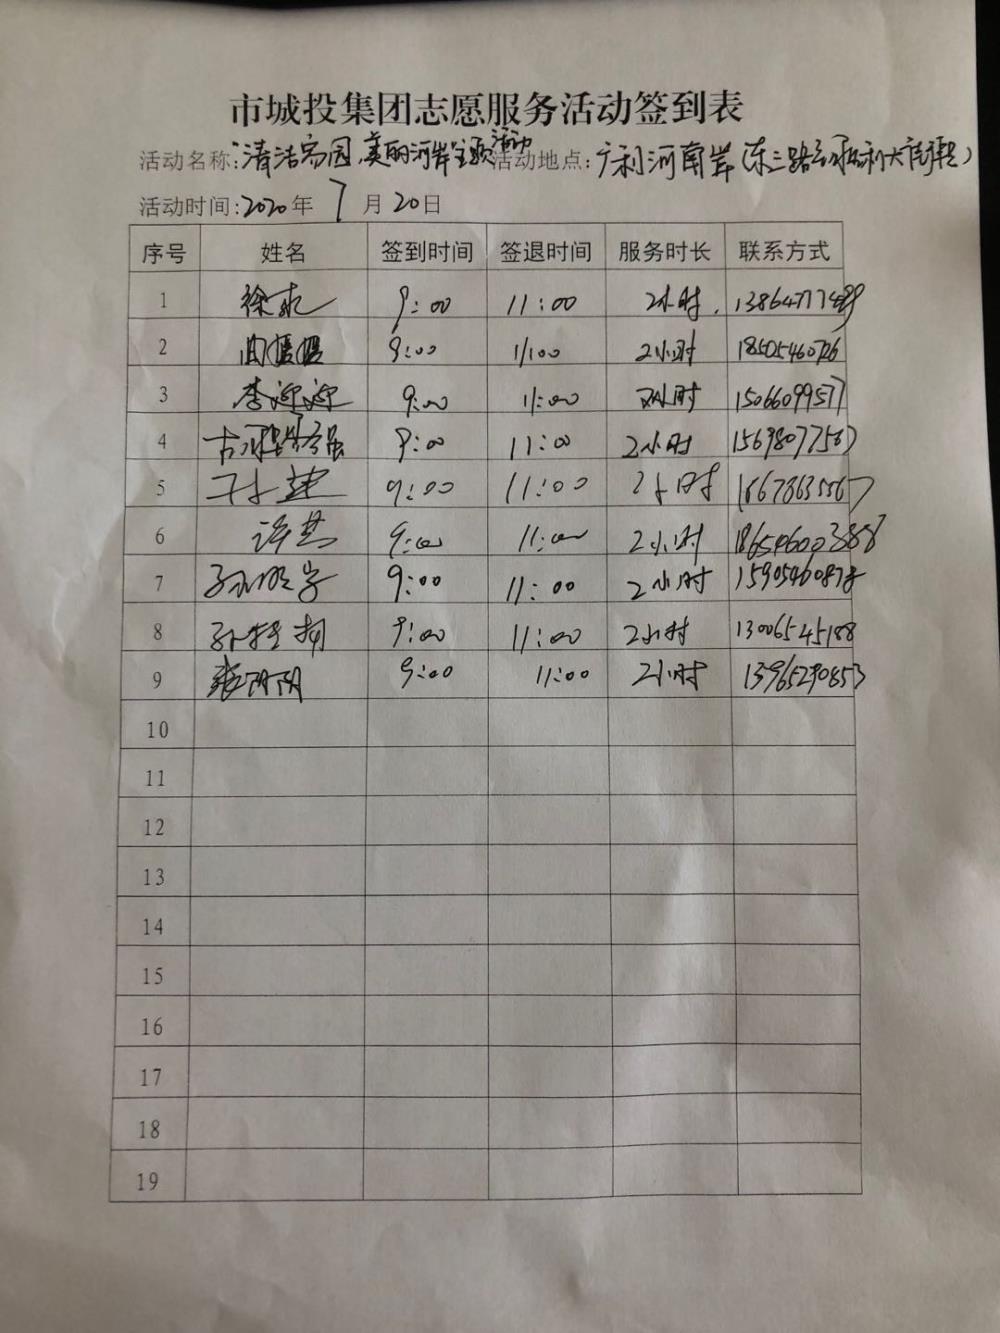 市城投集团志愿服务活动签到表
活动名称:"清洁家园,美丽河岸"主题活动 活动地点:广利河南岸(东三路至 大街段)
活动时间:2020年 7 月 20日
序号 姓名 签到时间 签退时间 服务时长 联系方式
1 9:00 11:00 2小时
2 9:00 11:00 2小时 18505460726
3 李迎迎 9:00 11:00 2小时 15066099577
4 9:00 11:00 2小时 15698077587
5 孙建 9:00 11:00 2小时
6 9:00 11:00 2小时
7 9:00 11:00 2小时
8 9:00 11:00 2小时 13006545188
9 张阴阴 9:00 11:00 2小时
10
11
12
13
14
15
16
17
18
19